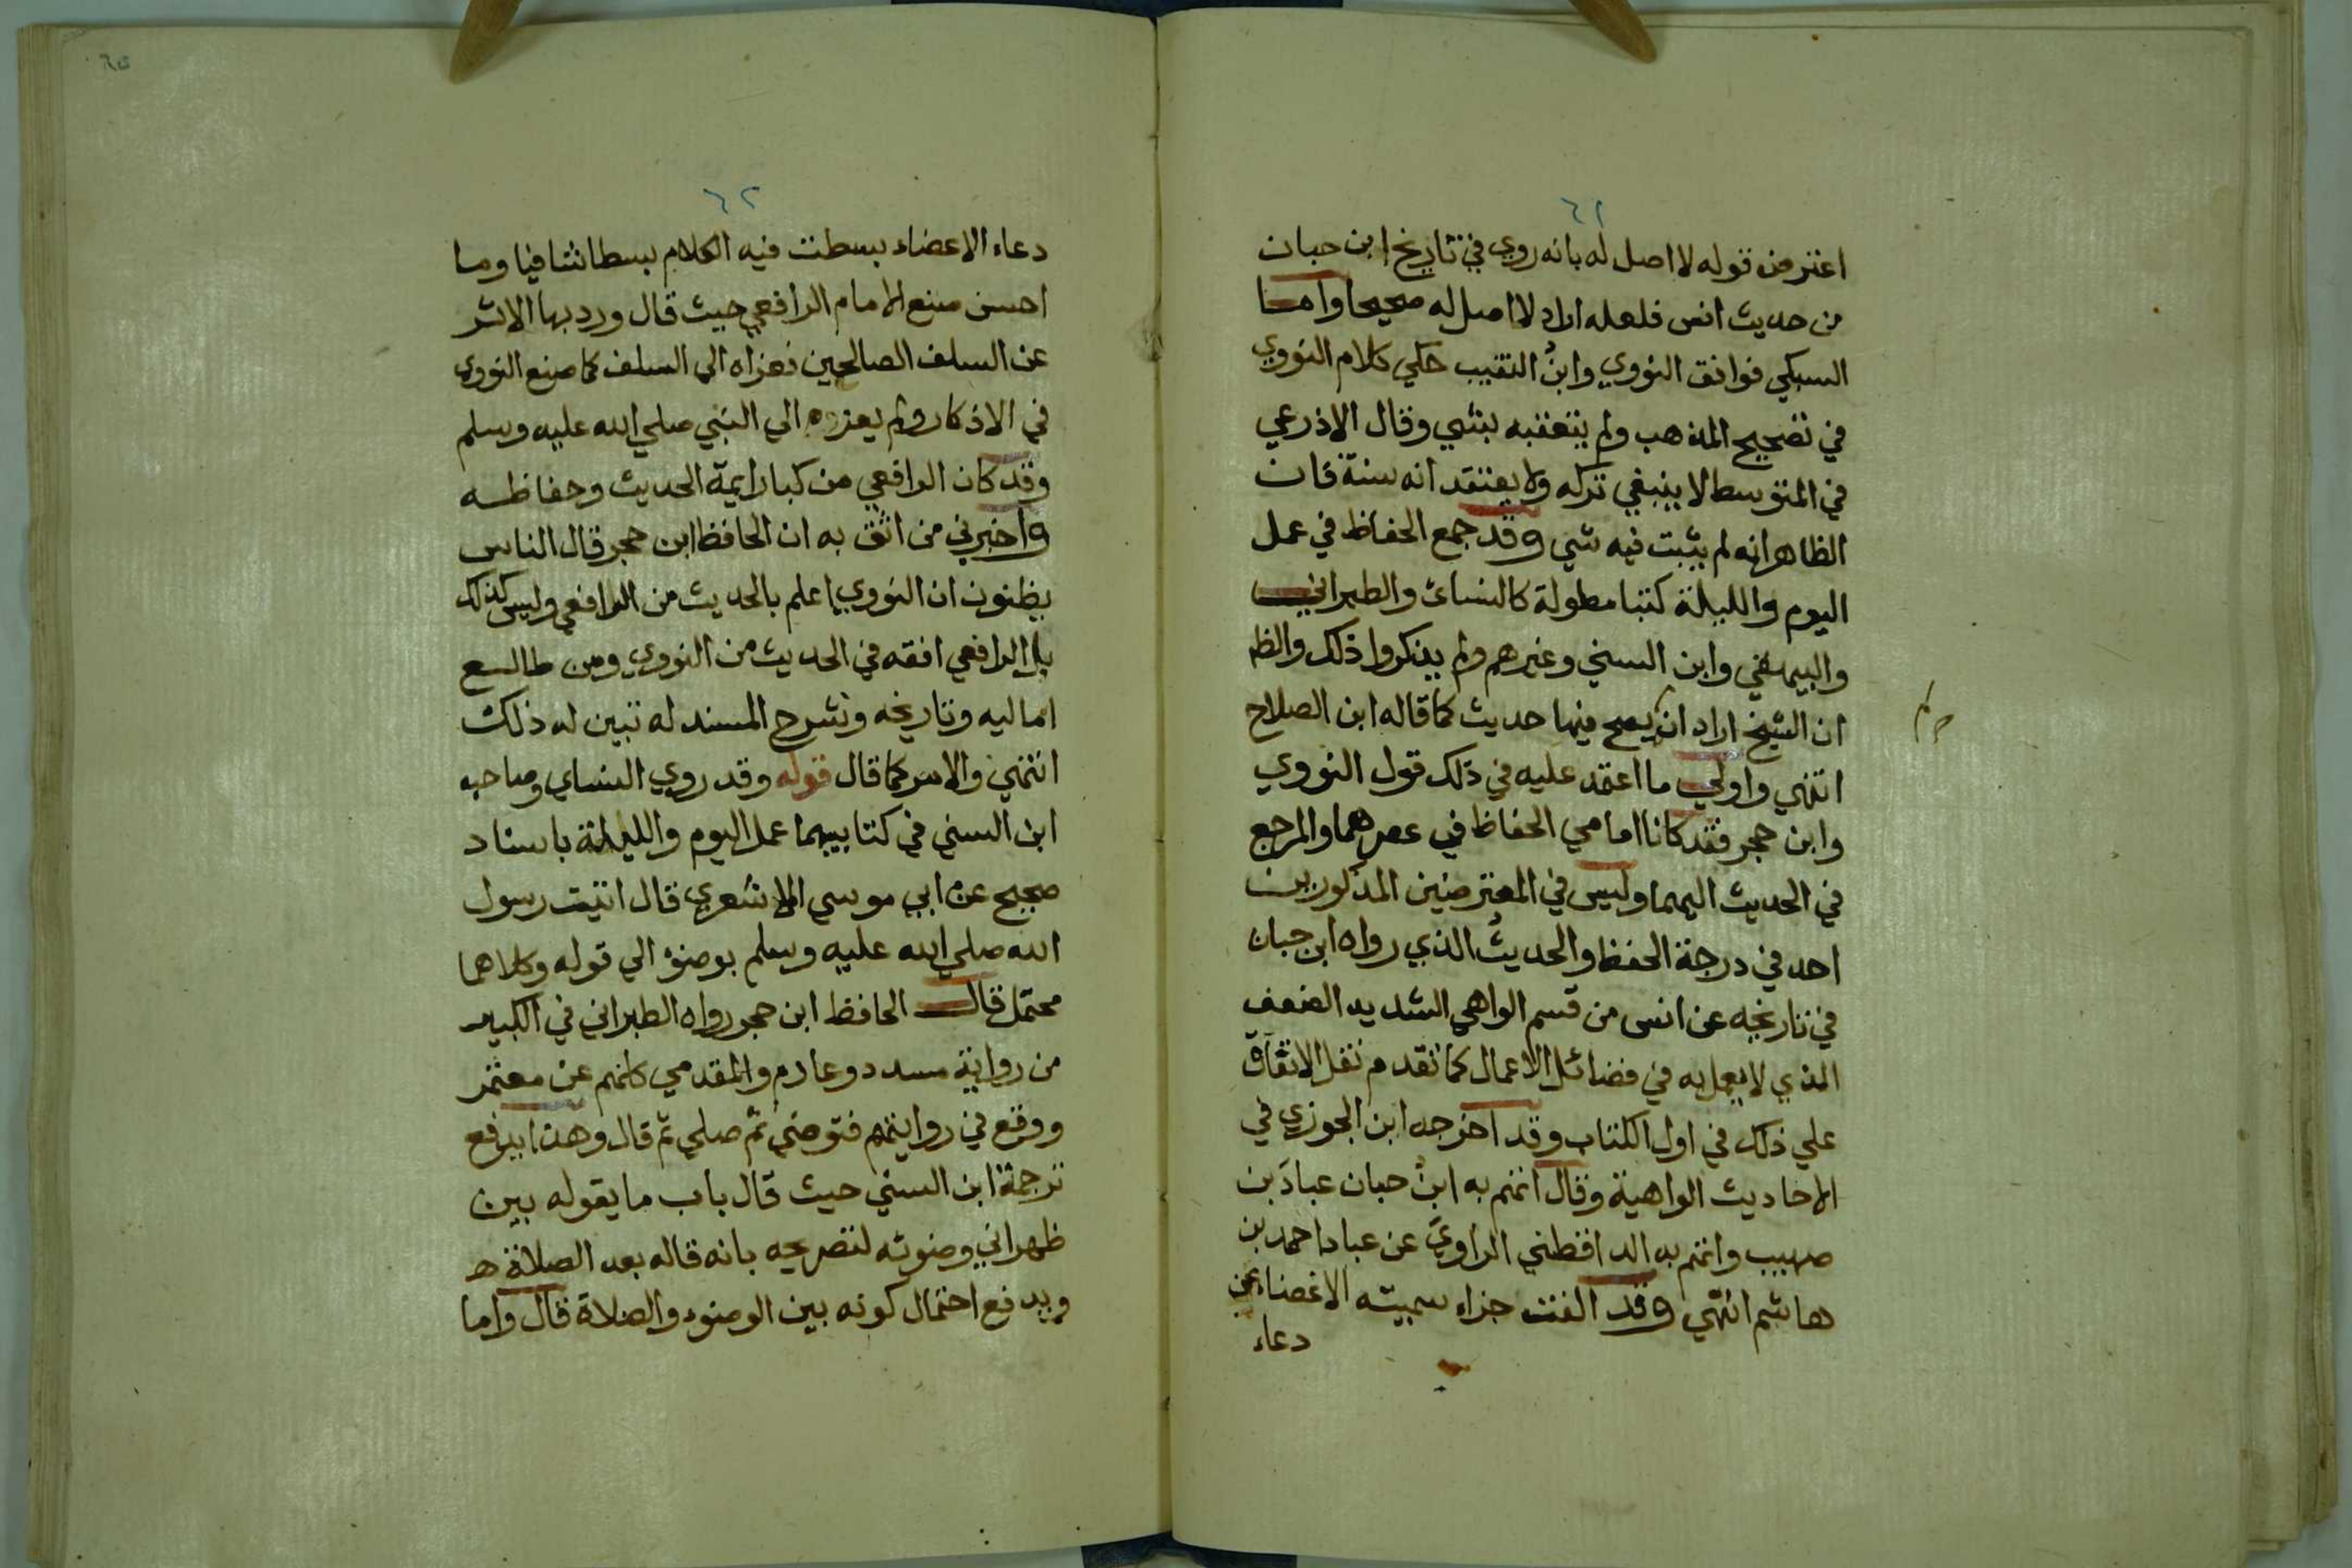 ٦١
اعترض قوله لا اصل له بانه روي في تاريخ ابن حبان
من حديث انس فلعله اراد لا اصل له صحيحا واما
السبكي فوافق النووي وابن النقيب حكي كلام النووي
في تصحيح المذهب ولم يتعقبه بشي وقال الاذرعي
في المتوسط لا ينبغي تركه ولا يعتقد انه سنة فان
الظاهر انه لم يثبت فيه شي وقد جمع الحفاظ في عمل
اليوم والليلة كتبا مطولة كالنسائ والطبراني
والبيهقي وابن السني وغيرهم ولم يذكروا ذلك والظ
ان الشيخ اراد انه يصح فيها حديث كما قاله ابن الصلاح
لم
انتهي واولي ما اعتمد عليه في ذلك قول النووي
وابن حجر فقد كانا امامي الحفاظ في عصرهما والمرجع
في الحديث اليهما وليس في المعترضين المذكورين
احد في درجة الحفظ والحديث الذي رواه ابن حبان
في تاريخه عن انس من قسم الواهي الشديد الضعف
الذي لا يعمل به في فضائل الاعمال كما تقدم نقل الاتفاق
علي ذلك في اول الكتاب وقد اخرجه ابن الجوزي في
الاحاديث الواهية وقال اتهم به ابن حبان عباد بن
صهيب واتهم به الداقطني الراوي عن عباد احمد بن
هاشم انتهي وقد الفت جزاء سميته الاغضاء عن
دعاء
٦٢
دعاء الاعضاء بسطت فيه الكلام بسطا شافيا وما
احسن صنع الامام الرافعي حيث قال ورد بها الاثر
عن السلف الصالحين فعزاه الي السلف كما صنع النووي
في الاذكار ولم يعزه الي النبي صلي الله عليه وسلم
وقد كان الرافعي من كبار ايمة الحديث وحفاظه
واخبرني من اثق به ان الحافظ ابن حجر قال الناس
يظنون ان النووي اعلم بالحديث من الرافعي وليس كذلك
بل الرافعي افقه في الحديث من النووي ومن طالع
اماليه وتاريخه وشرح المسند له تبين له ذلك
انتهي والامر كما قال قوله وقد روي النساي وصاحبه
ابن السني في كتابيهما عمل اليوم والليلة باسناد
صحيح عن ابي موسي الاشعري قال اتيت رسول
الله صلي الله عليه وسلم بوضوْ الي قوله وكلاهما
محتمل قال الحافظ ابن حجر رواه الطبراني في الكبير
من رواية مسدد وعارم والمقدمي كلهم عن معتمر
ووقع في روايتهم فتوضي ثم صلي ثم قال وهذا يدفع
ترجمة ابن السني حيث قال باب ما يقوله بين
ظهراني وضوئه لتصريحه بانه قاله بعد الصلاة ه
ويدفع احتمال كونه بين الوضوء والصلاة قال واما